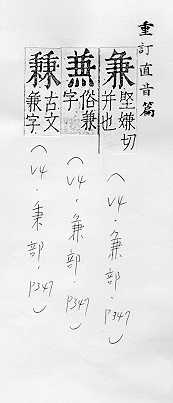 重訂直音篇
兼 堅嫌切
并也
(V4．兼部．P347)
𠔥 俗兼
字
(V4．兼部．P347)
古文
兼字
(V4．秉部．P347)